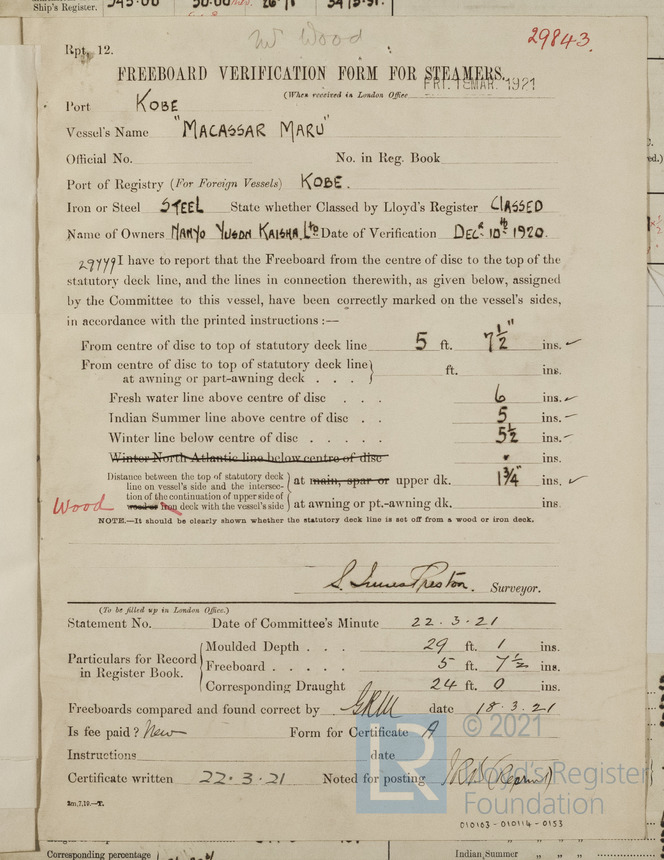 Ship's Register.
Mr Wood
29843.
Rpt. 12.
FREEBOARD VERIFICATION FORM FOR STEAMERS.
FRI. 18 MAR. 1921
(When received in London Office
Port KOBE
Vessel's Name "MACASSAR MARU"
Official No. No. in Reg. Book
Port of Registry (For Foreign Vessels) KOBE.
Iron or Steel STEEL State whether Classed by Lloyd's Register CLASSED
Name of Owners NANYO YUSON KAISHA, Ltd Date of Verification DECR. 10th 1920.
29449 I have to report that the Freeboard from the centre of disc to the top of the
statutory deck line, and the lines in connection therewith, as given below, assigned
by the Committee to this vessel, have been correctly marked on the vessel's sides,
in accordance with the printed instructions :—
From centre of disc to top of statutory deck line 5 ft. 7½" ins. ✓
From centre of disc to top of statutory deck line
at awning or part-awning deck . . . ft. ins.
Fresh water line above centre of disc . . . 6 ins. ✓
Indian Summer line above centre of disc . . 5 ins.
Winter line below centre of disc . . . . . 5½ ins.
Winter North Atlantic line below centre of disc
Distance between the top of statutory deck
line on vessel's side and the intersec-
tion of the continuation of upper side of
wood or Iron deck with the vessel's side
at main, spar or upper dk. 1¾" ins. ✓
Wood
at awning or pt.-awning dk. ins.
NOTE.—It should be clearly shown whether the statutory deck line is set off from a wood or iron deck.
S. Innes Preston. Surveyor.
(To be filled up in London Office.)
Statement No. Date of Committee's Minute 22.3.21
Particulars for Record
in Register Book.
Moulded Depth . . . 29 ft. 1 ins.
Freeboard . . . . . 5 ft. 7½ ins.
Corresponding Draught 24 ft. 0 ins.
Freeboards compared and found correct by GRM date 18.3.21
Is fee paid? New Form for Certificate A
Instructions date
Certificate written 22.3.21 Noted for posting
2m,7,19.—T.
© 2021
LR
Lloyd's Register
Foundation
010103-010114-0153
Corresponding percentage
Indian Summer